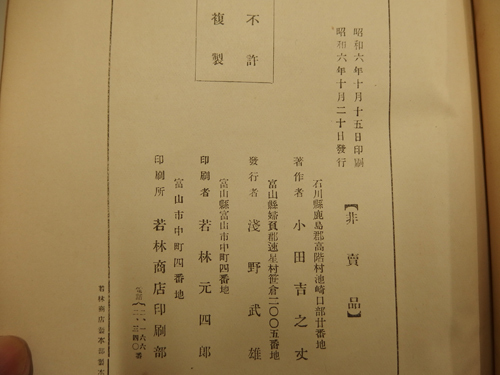 昭和六年十月十五日印刷
昭和六年十月二十日發行
【非賣品】
不許
複製
石川縣鹿島郡高階村池崎口部廿番地
著作者 小田吉之丈
富山縣婦負郡速星村笹倉二〇〇五番地
發行者 淺野武雄
富山縣富山市中町四番地
印刷者 若林元四郎
富山市中町四番地
印刷所 若林商店印刷部
若林商店製本部製本